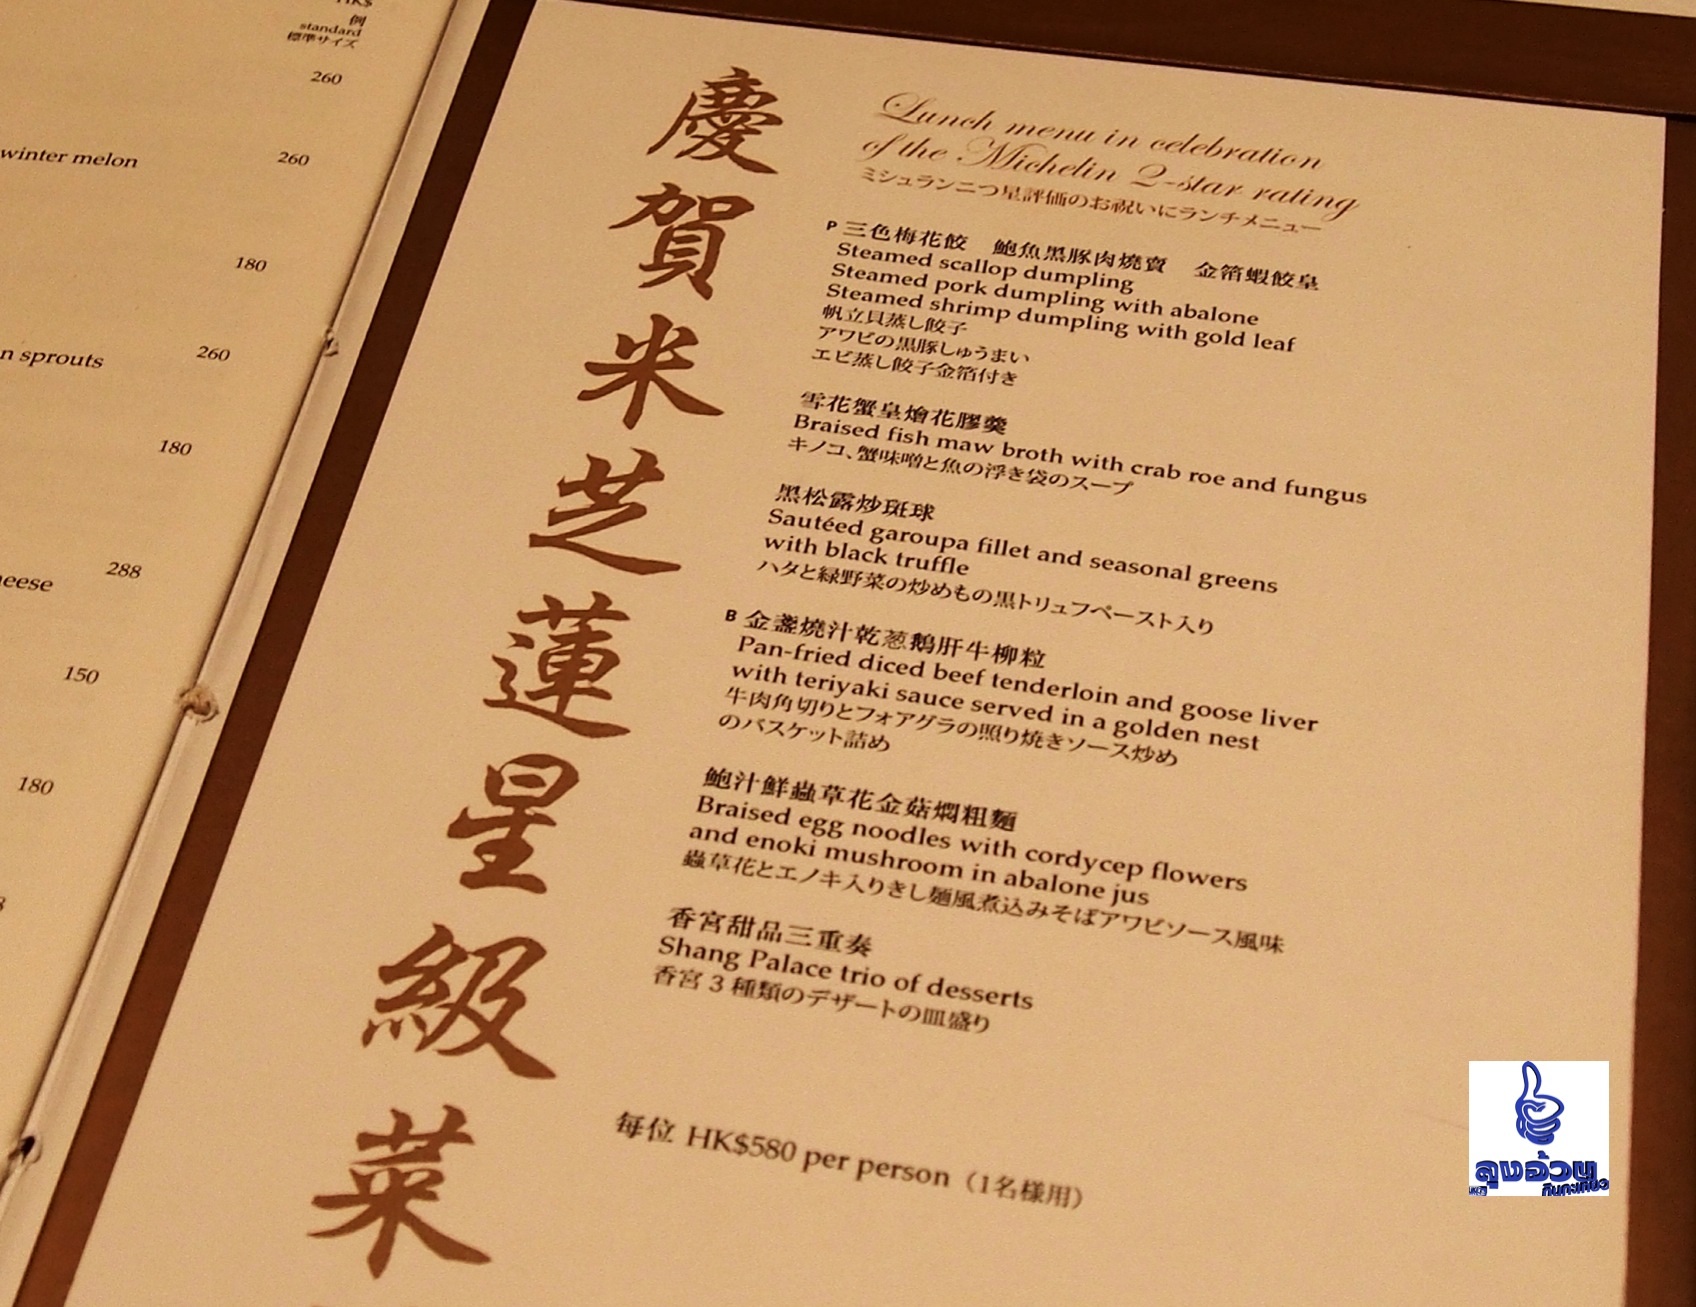 HK$
例
standard
標準サイズ
260
winter melon 260
180
n sprouts 260
180
288
heese
150
180
慶賀米芝蓮星級菜
Lunch menu in celebration
of the Michelin 2-star rating
ミシュラン二つ星評価のお祝いにランチメニュー
P 三色梅花餃 鮑魚黑豚肉燒賣 金箔蝦餃皇
Steamed scallop dumpling
Steamed pork dumpling with abalone
Steamed shrimp dumpling with gold leaf
帆立貝蒸し餃子
アワビの黒豚しゅうまい
エビ蒸し餃子金箔付き
雪花蟹皇燴花膠羹
Braised fish maw broth with crab roe and fungus
キノコ、蟹味噌と魚の浮き袋のスープ
黑松露炒斑球
Sautéed garoupa fillet and seasonal greens
with black truffle
ハタと緑野菜の炒めもの黒トリュフペースト入り
B 金盞燒汁乾葱鵝肝牛柳粒
Pan-fried diced beef tenderloin and goose liver
with teriyaki sauce served in a golden nest
牛肉角切りとフォアグラの照り焼きソース炒め
のバスケット詰め
鮑汁鮮蟲草花金菇燜粗麵
Braised egg noodles with cordycep flowers
and enoki mushroom in abalone jus
蟲草花とエノキ入りきし麺風煮込みそばアワビソース風味
香宮甜品三重奏
Shang Palace trio of desserts
香宮 3 種類のデザートの皿盛り
每位 HK$580 per person（1名様用）
ลุงอ้วน
กินกะเที่ยว